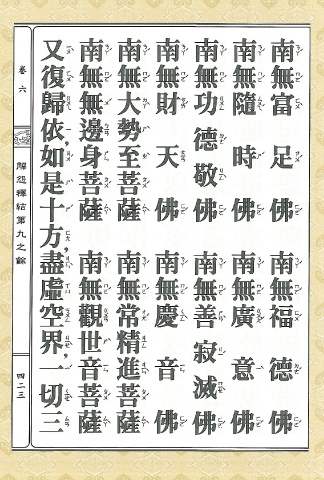 南無富足佛　南無福德佛
南無隨時佛　南無廣意佛
南無功德敬佛　南無善寂滅佛
南無財天佛　南無慶音佛
南無大勢至菩薩　南無常精進菩薩
南無無邊身菩薩　南無觀世音菩薩
又復歸依，如是十方盡虛空界，一切三
卷六
解怨釋結第九之餘
四二三